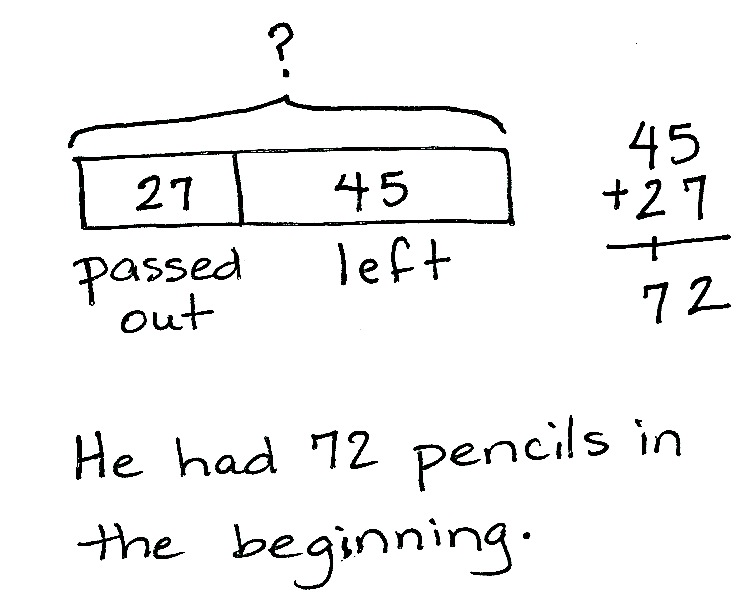 ?
27 45
passed left
out
45
+27
1
72
He had 72 pencils in
the beginning.